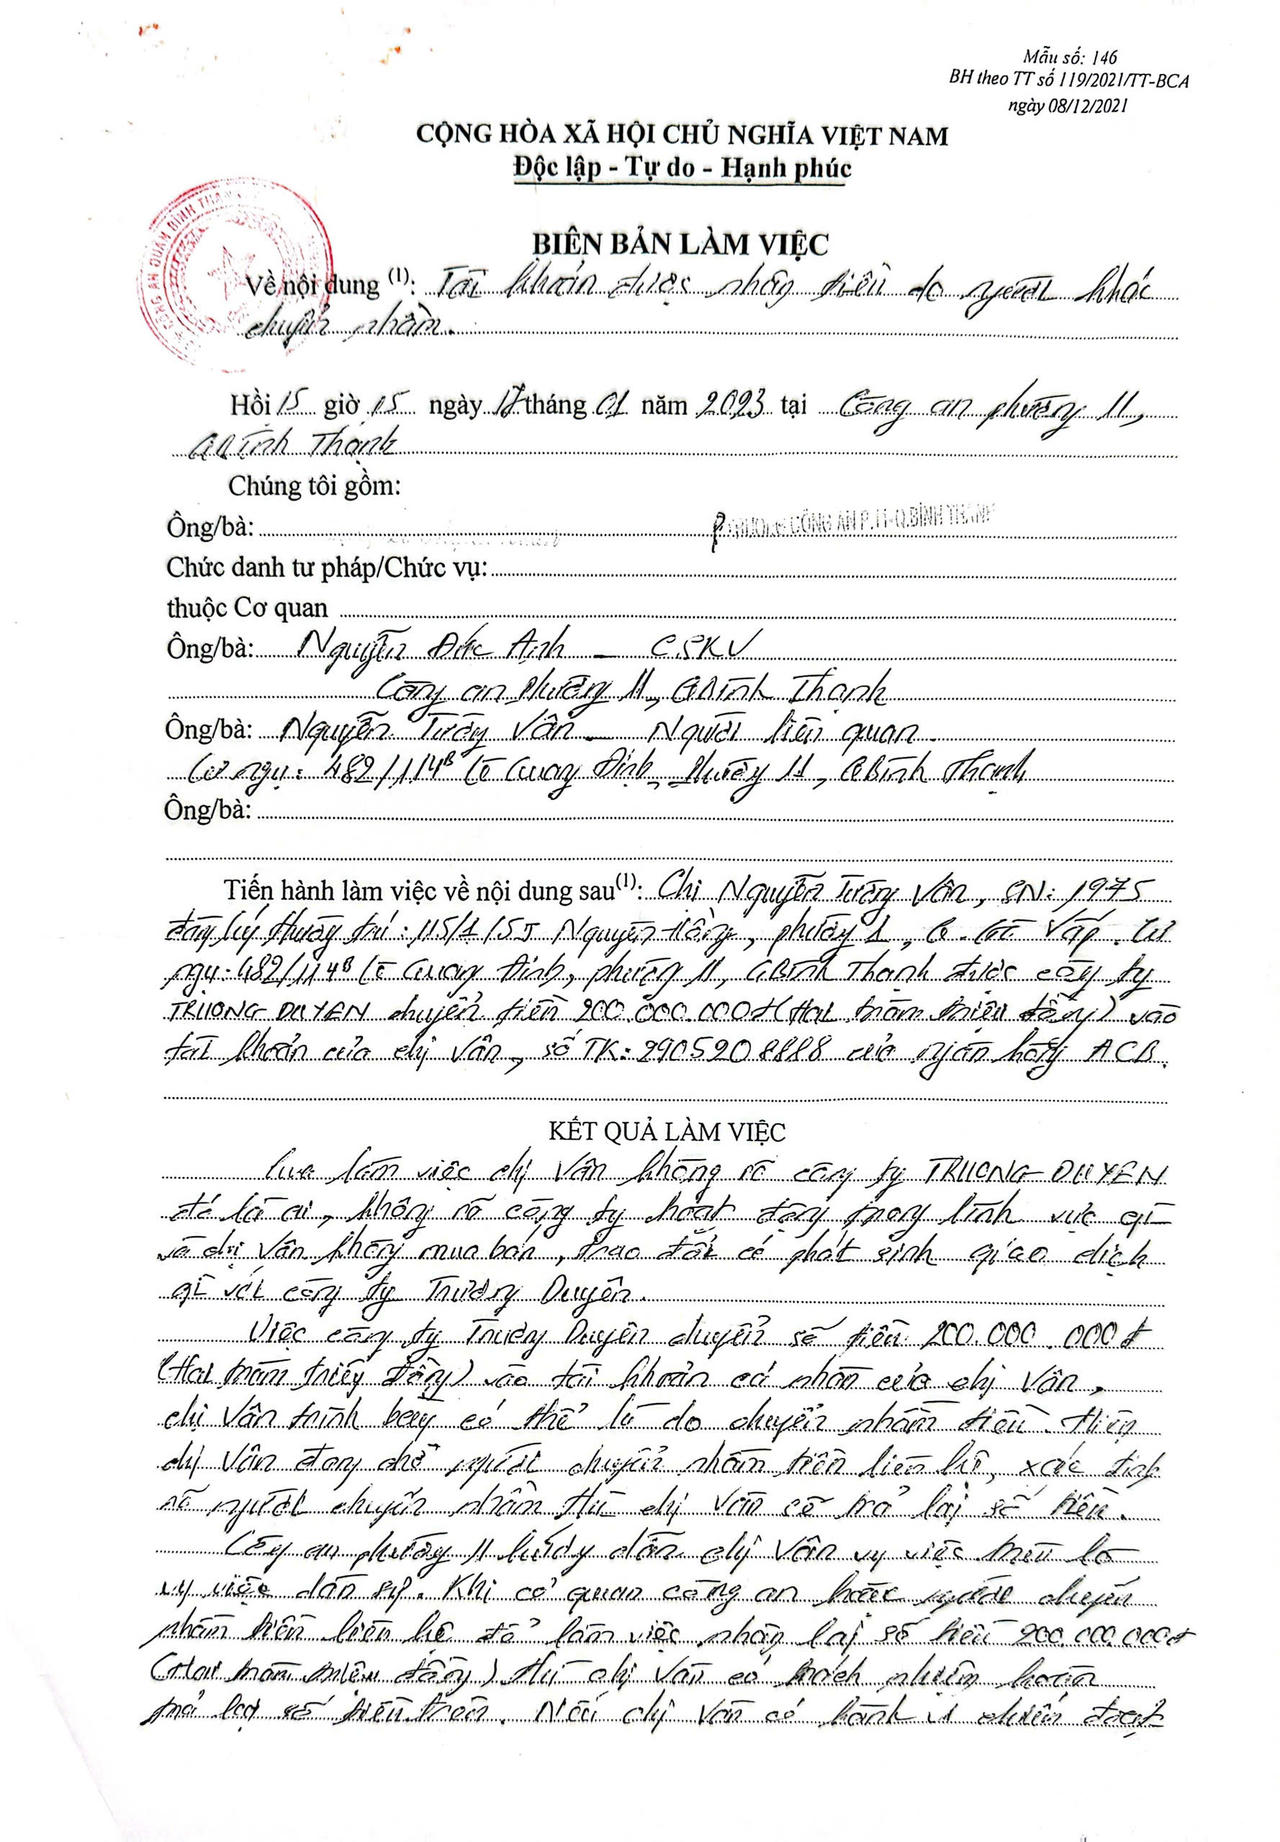 Mẫu số: 146
BH theo TT số 119/2021/TT-BCA
ngày 08/12/2021
CỘNG HÒA XÃ HỘI CHỦ NGHĨA VIỆT NAM
Độc lập - Tự do - Hạnh phúc
BIÊN BẢN LÀM VIỆC
Về nội dung (1): Tài khoản được nhận tiền do người khác
chuyển nhầm.
Hồi 15 giờ 15 ngày 17 tháng 01 năm 2023 tại Công an phường 11,
Q Bình Thạnh
Chúng tôi gồm:
Ông/bà: TRƯỞNG CÔNG AN P.11-Q.BÌNH THẠNH
Chức danh tư pháp/Chức vụ:
thuộc Cơ quan
Ông/bà: Nguyễn Đức Anh – CSKV
Công an phường 11, Q Bình Thạnh
Ông/bà: Nguyễn Tường Vân – Người liên quan.
Cư ngụ: 482/114B Lê Quang Định, phường 11, Q Bình Thạnh
Ông/bà:
Tiến hành làm việc về nội dung sau(1): Chị Nguyễn Tường Vân, SN: 1975
đăng ký thường trú: 115/1/5J Nguyên Hồng, phường 1, Q. Gò Vấp. Cư
ngụ: 482/114B Lê Quang Định, phường 11, Q Bình Thạnh được công ty
TRUONG DUYEN chuyển tiền 200.000.000đ (Hai trăm triệu đồng) vào
tài khoản của chị Vân, số TK: 2905208888 của ngân hàng ACB.
KẾT QUẢ LÀM VIỆC
Qua làm việc chị Vân không rõ công ty TRUONG DUYEN
đó là ai, không rõ công ty hoạt động trong lĩnh vực gì
và chị Vân không mua bán, trao đổi có phát sinh giao dịch
gì với công ty Trương Duyên.
Việc công ty Trương Duyên chuyển số tiền 200.000.000đ
(Hai trăm triệu đồng) vào tài khoản cá nhân của chị Vân,
chị Vân trình bày có thể là do chuyển nhầm tiền. Hiện
chị Vân đang chờ người chuyển nhầm tiền liên hệ, xác định
rõ người chuyển nhầm thì chị Vân sẽ trả lại số tiền.
Công an phường 11 hướng dẫn chị Vân vụ việc trên là
vụ việc dân sự. Khi cơ quan công an hoặc người chuyển
nhầm tiền liên hệ để làm việc nhận lại số tiền 200.000.000đ
(Hai trăm triệu đồng) thì chị Vân có trách nhiệm hoàn
trả lại số tiền trên. Nếu chị Vân có hành vi chiếm đoạt